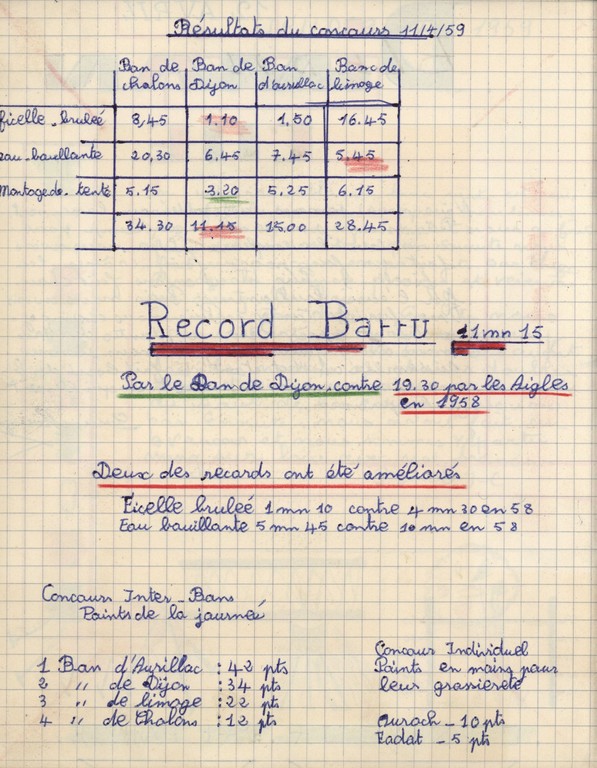 Résultats du concours 11/4/59
Ban de chalons Ban de Dijon Ban d'aurillac Banc de limoge
ficelle. bruleé 3,45 1.10 1,50 16.45
eau. bauillante 20,30 6.45 7.45 5.45
Montage de. tente 5.15 3.20 5.25 6.15
34.30 11.15 15.00 28.45
Record Barru 11mn 15
Par le Ban de Dijon. contre 19.30 par les Aigles
en 1958
Deux des records ont été améliorés
Ficelle bruleé 1mn 10 contre 4 mn 30 en 58
Eau bauillante 5 mn 45 contre 10 mn en 58
Concours Inter - Bans
Points de la journeé
1 Ban d'Aurillac : 42 pts
2 " de Dijon : 34 pts
3 " de limoge : 22 pts
4 " de Chalons : 12 pts
Concours Individuel
Points en moins pour
leur grossiereté
Aurach - 10 pts
Fadat - 5 pts